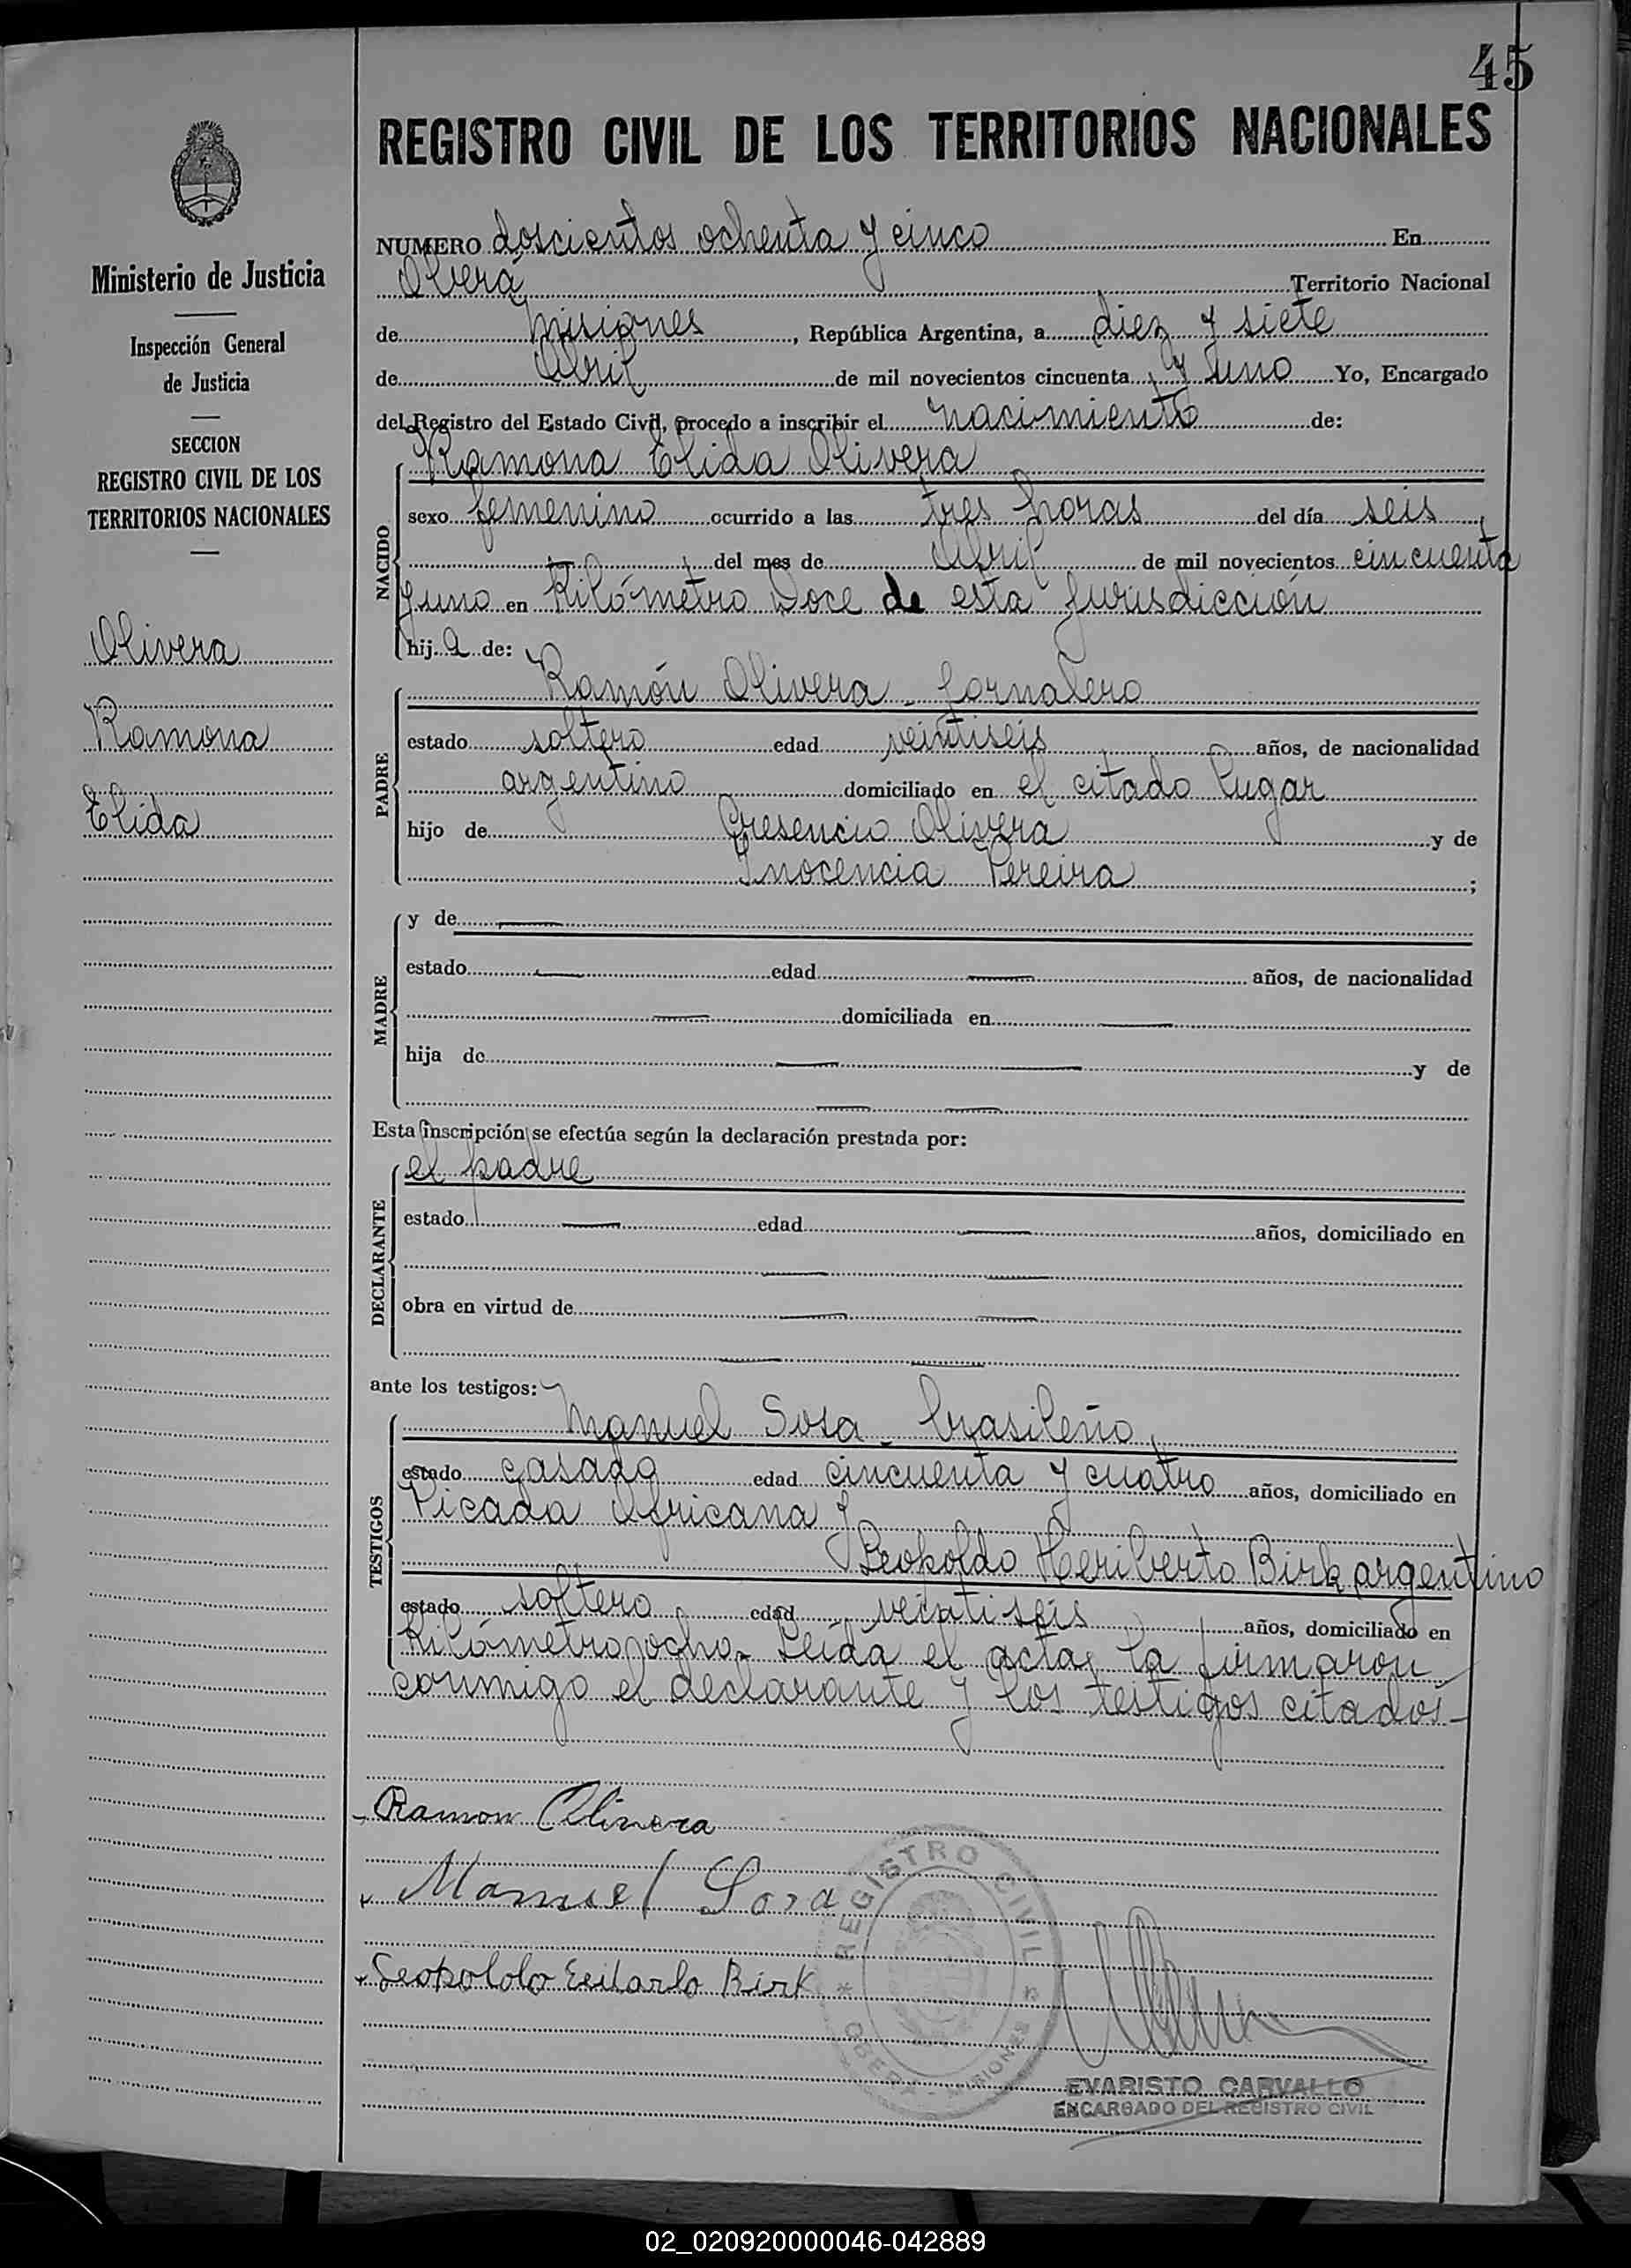 45
REGISTRO CIVIL DE LOS TERRITORIOS NACIONALES
Ministerio de Justicia
Inspección General
de Justicia
SECCION
REGISTRO CIVIL DE LOS
TERRITORIOS NACIONALES
Olivera
Ramona
Elida
NUMERO doscientos ochenta y cinco En
Oberá Territorio Nacional
de Misiones, República Argentina, a diez y siete
de Abril de mil novecientos cincuenta y uno Yo, Encargado
del Registro del Estado Civil, procedo a inscribir el nacimiento de:
NACIDO
Ramona Elida Olivera
sexo femenino ocurrido a las tres horas del día seis
del mes de Abril de mil novecientos cincuenta
y uno en Kilómetro Doce de esta jurisdicción
hij a de:
PADRE
Ramón Olivera - jornalero
estado soltero edad veintiseis años, de nacionalidad
argentino domiciliado en el citado lugar
hijo de Cresencio Olivera y de
Inocencia Pereira ;
MADRE
y de
estado edad años, de nacionalidad
domiciliada en
hija de y de
Esta inscripción se efectúa según la declaración prestada por:
DECLARANTE
el padre
estado edad años, domiciliado en
obra en virtud de
ante los testigos:
TESTIGOS
Manuel Sosa - brasileño,
estado casado edad cincuenta y cuatro años, domiciliado en
Picada Africana y
Leopoldo Heriberto Birk argentino
estado soltero edad veintiseis años, domiciliado en
Kilómetro ocho - Leída el acta, la firmaron
conmigo el declarante y los testigos citados -
Ramon Olivera
Manuel Sosa
Leopoldo Birk
REGISTRO CIVIL
OBERA - MISIONES
EVARISTO CARVALLO
ENCARGADO DEL REGISTRO CIVIL
02_020920000046-042889